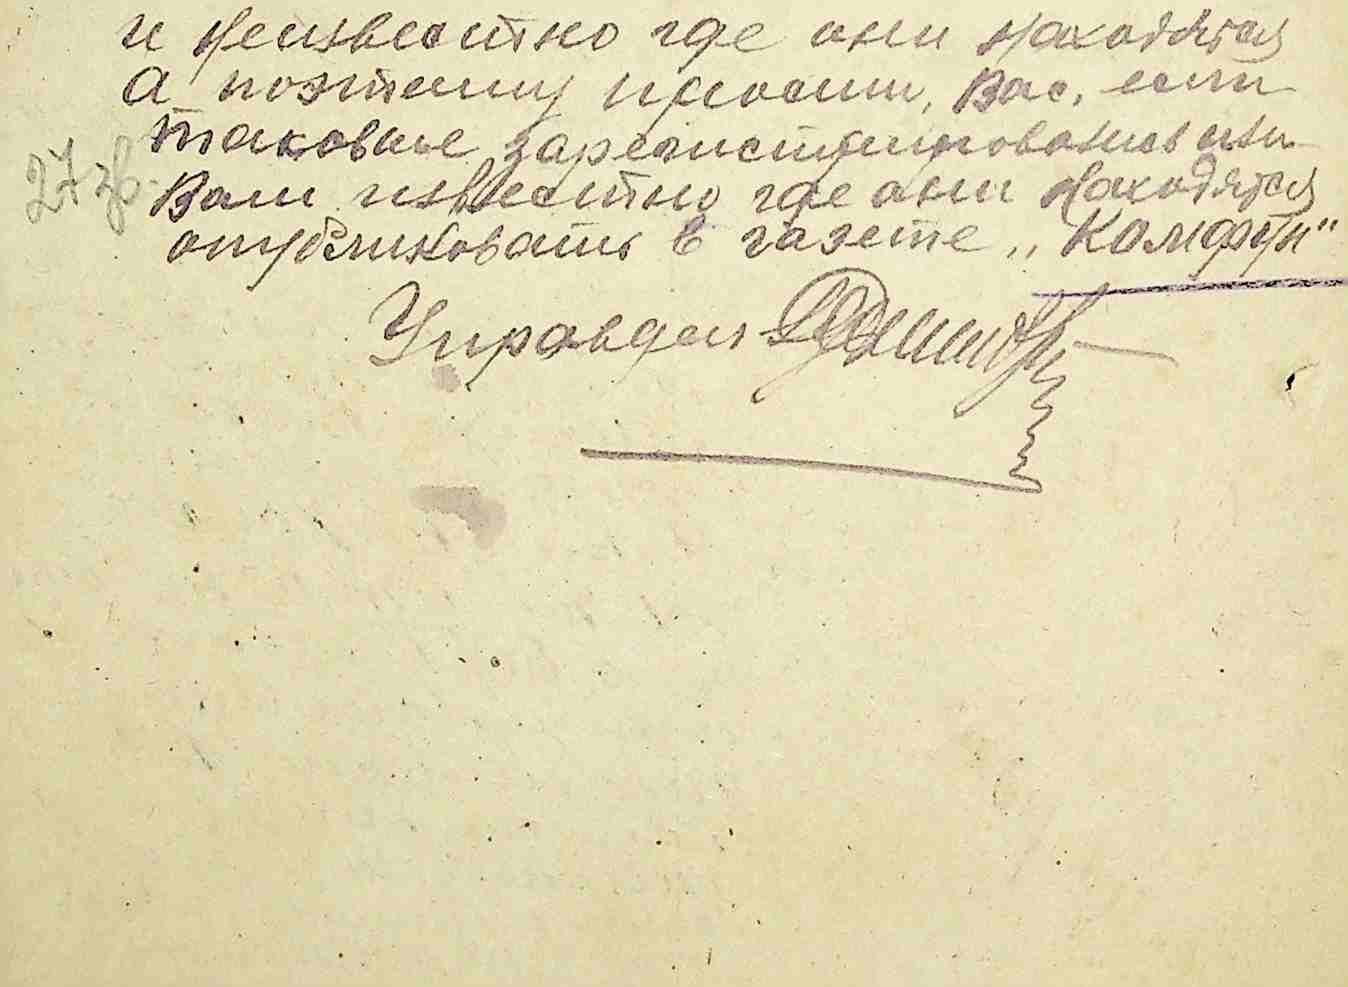 и неизвестно где они находятся
А поэтому просим, Вас, если
таковые зарегистрировались или
27 зв.
Вам известно где они находятся
опубликовать в газете „Комфун"
Управдел